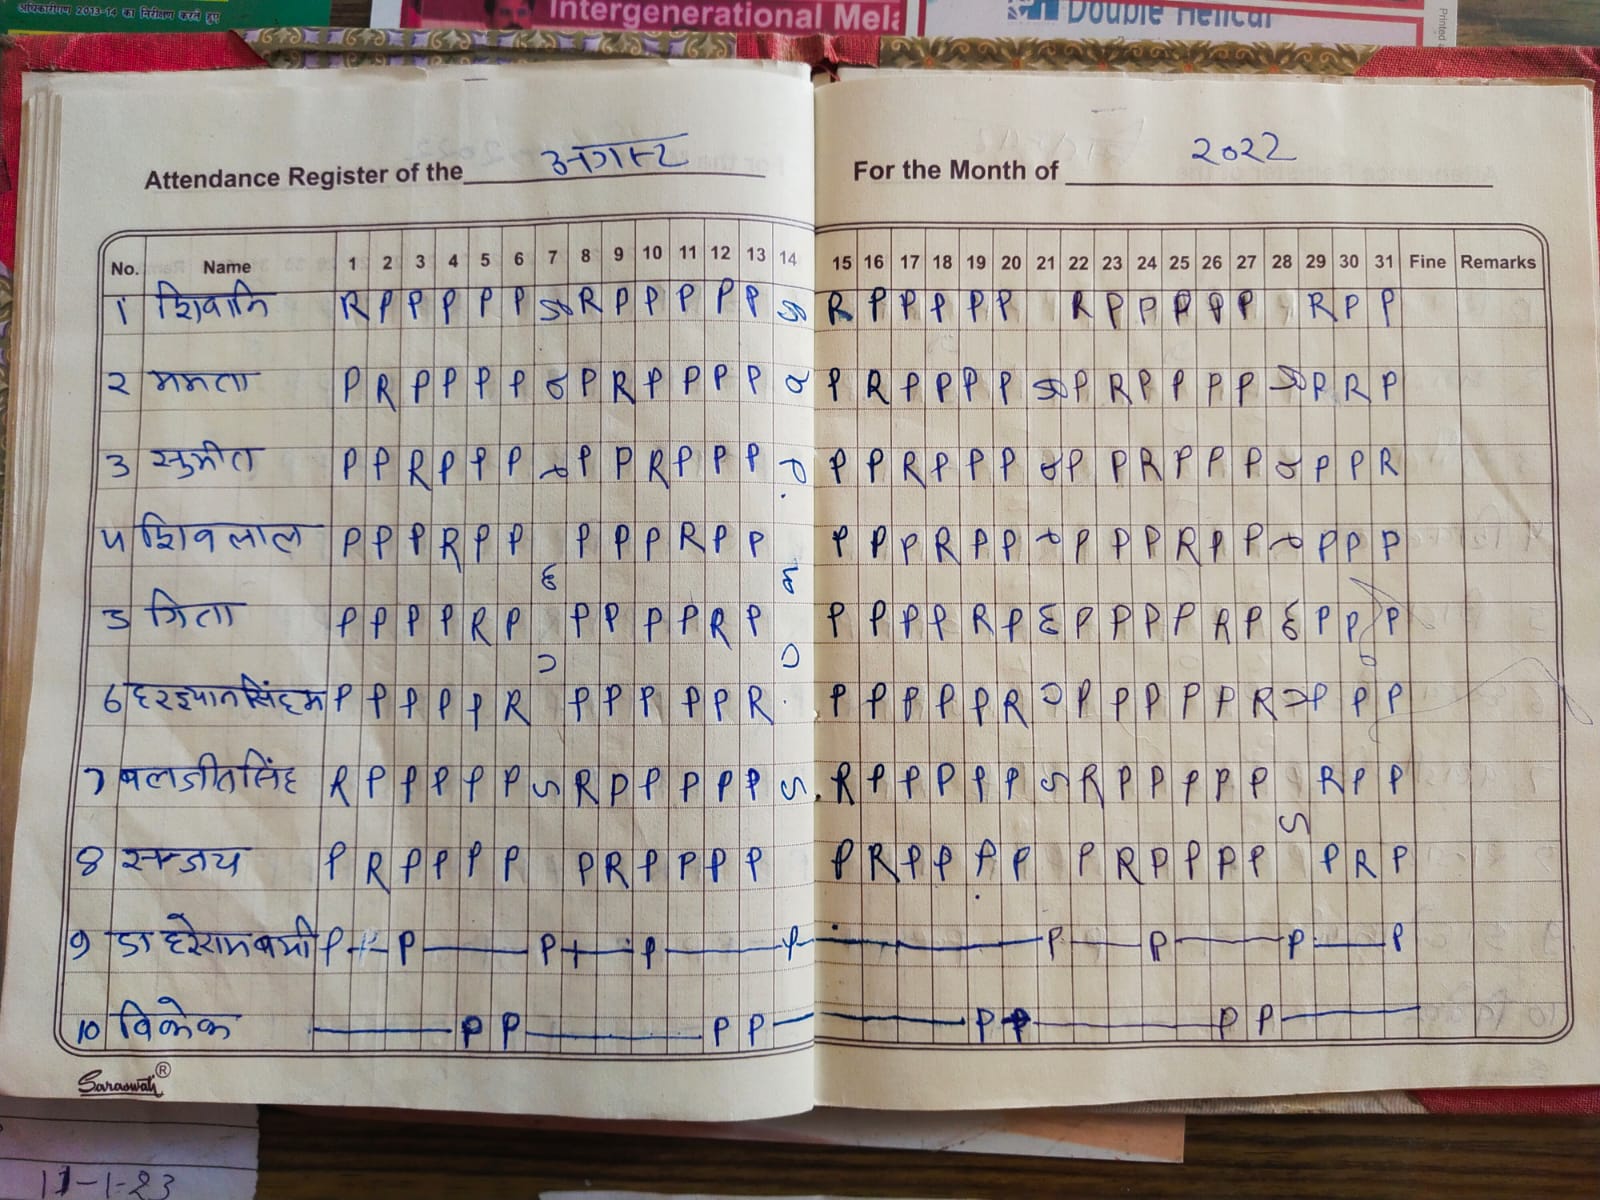 अधिकारीगण 2013-14 का निरीक्षण करते हुए
Intergenerational Mela
Double Helical
Printed
Attendance Register of the अगस्त
For the Month of 2022
No. Name 1 2 3 4 5 6 7 8 9 10 11 12 13 14 15 16 17 18 19 20 21 22 23 24 25 26 27 28 29 30 31 Fine Remarks
1 शिवानि R P P P P P S R P P P P P S R P P P P P R P P P P P R P P
2 ममता P R P P P P P R P P P P P R P P P P P R P P P P P R P
3 सुमीत P P R P P P P P R P P P P P R P P P P P R P P P P P R
4 शिवलाल P P P R P P P P P R P P P P P R P P P P P R P P P P P
5 गिता P P P P R P P P P P R P P P P P R P P P P P R P P P P
6 हरज्ञानसिंह P P P P P R P P P P P R P P P P P R P P P P P R P P P
7 बलजीतसिंह R P P P P P S R P P P P P S R P P P P P S R P P P P P R P P
S
8 सन्जय P R P P P P P R P P P P P R P P P P P R P P P P P R P
9 डा हरेराम P P P P P P P P P
10 विवेक P P P P P P P P
Saraswati ®
11-1-23